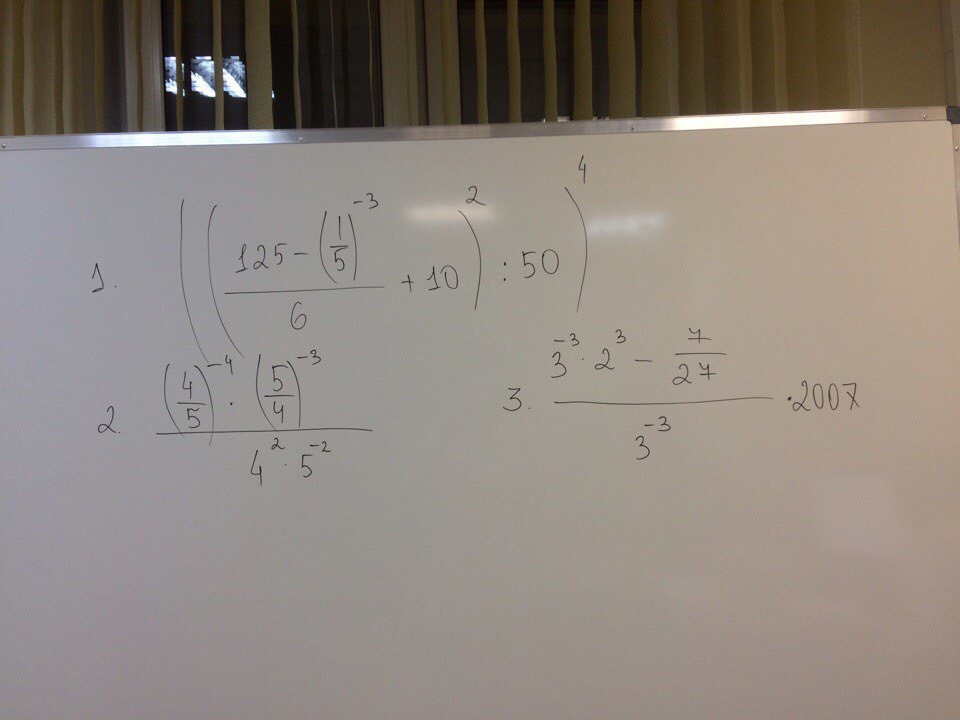 1. (((125 − (1/5)^−3)/6 + 10)^2 : 50)^4
2. ((4/5)^−4 · (5/4)^−3)/(4^2 · 5^−2)
3. (3^−3 · 2^3 − 7/27)/(3^−3) · 2007